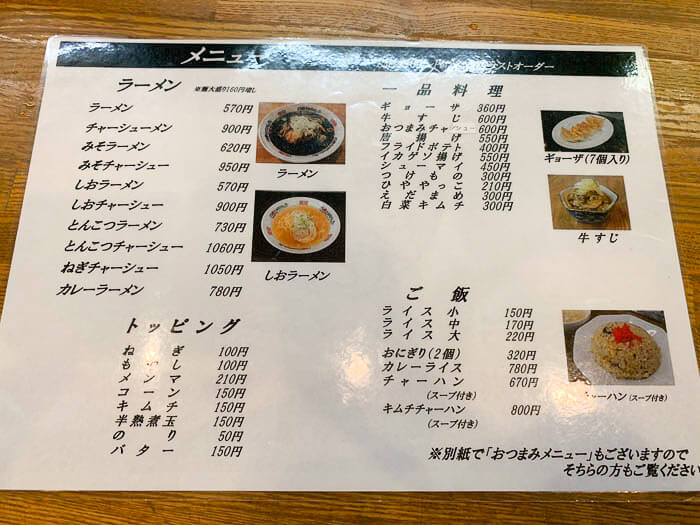 メニュー
ラストオーダー
ラーメン ※麺大盛り160円増し
ラーメン 570円
チャーシューメン 900円
みそラーメン 620円
みそチャーシュー 950円
しおラーメン 570円
しおチャーシュー 900円
とんこつラーメン 730円
とんこつチャーシュー 1060円
ねぎチャーシュー 1050円
カレーラーメン 780円
ラーメン
しおラーメン
トッピング
ねぎ 100円
もやし 100円
メンマ 210円
コーン 150円
キムチ 150円
半熟煮玉 150円
のり 50円
バター 150円
一品料理
ギョーザ 360円
牛すじ 600円
おつまみチャーシュー 600円
唐揚げ 550円
フライドポテト 400円
イカゲソ揚げ 550円
シューマイ 450円
つけもの 300円
ひややっこ 210円
えだまめ 300円
白菜キムチ 300円
ギョーザ(7個入り)
牛すじ
ご飯
ライス小 150円
ライス中 170円
ライス大 220円
おにぎり(2個) 320円
カレーライス 780円
チャーハン 670円
(スープ付き)
キムチチャーハン 800円
(スープ付き)
チャーハン(スープ付き)
※別紙で「おつまみメニュー」もございますので
そちらの方もご覧ください